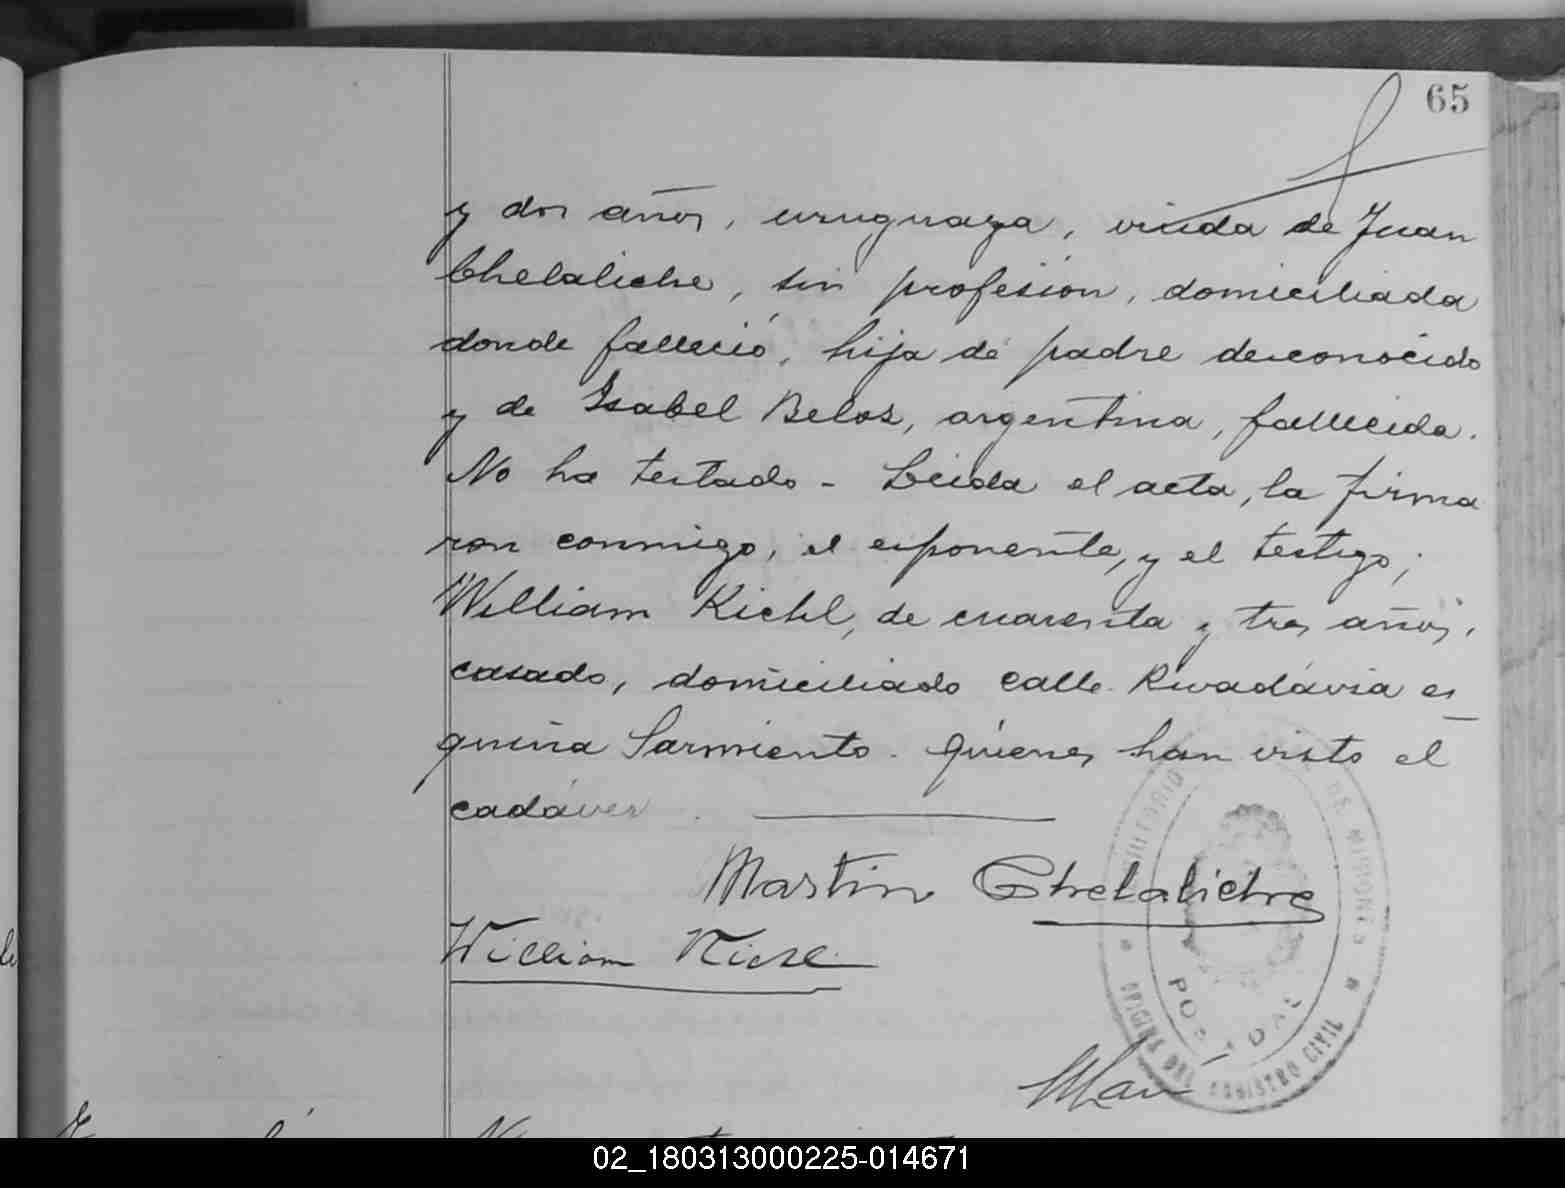 65
y dos años, uruguaya, viuda de Juan
Chelaliche, sin profesión, domiciliada
donde falleció, hija de padre desconocido
y de Isabel Belos, argentina, fallecida.
No ha testado - Leida el acta, la firma
ron conmigo, el exponente, y el testigo;
William Kiehl, de cuarenta y tres años,
casado, domiciliado calle Rivadavia es
quina Sarmiento. Quienes han visto el
cadáver
Martin Chelaliche
William
TERRITORIO DE MISIONES
POSADAS
OFICINA DEL REGISTRO CIVIL
02_180313000225-014671